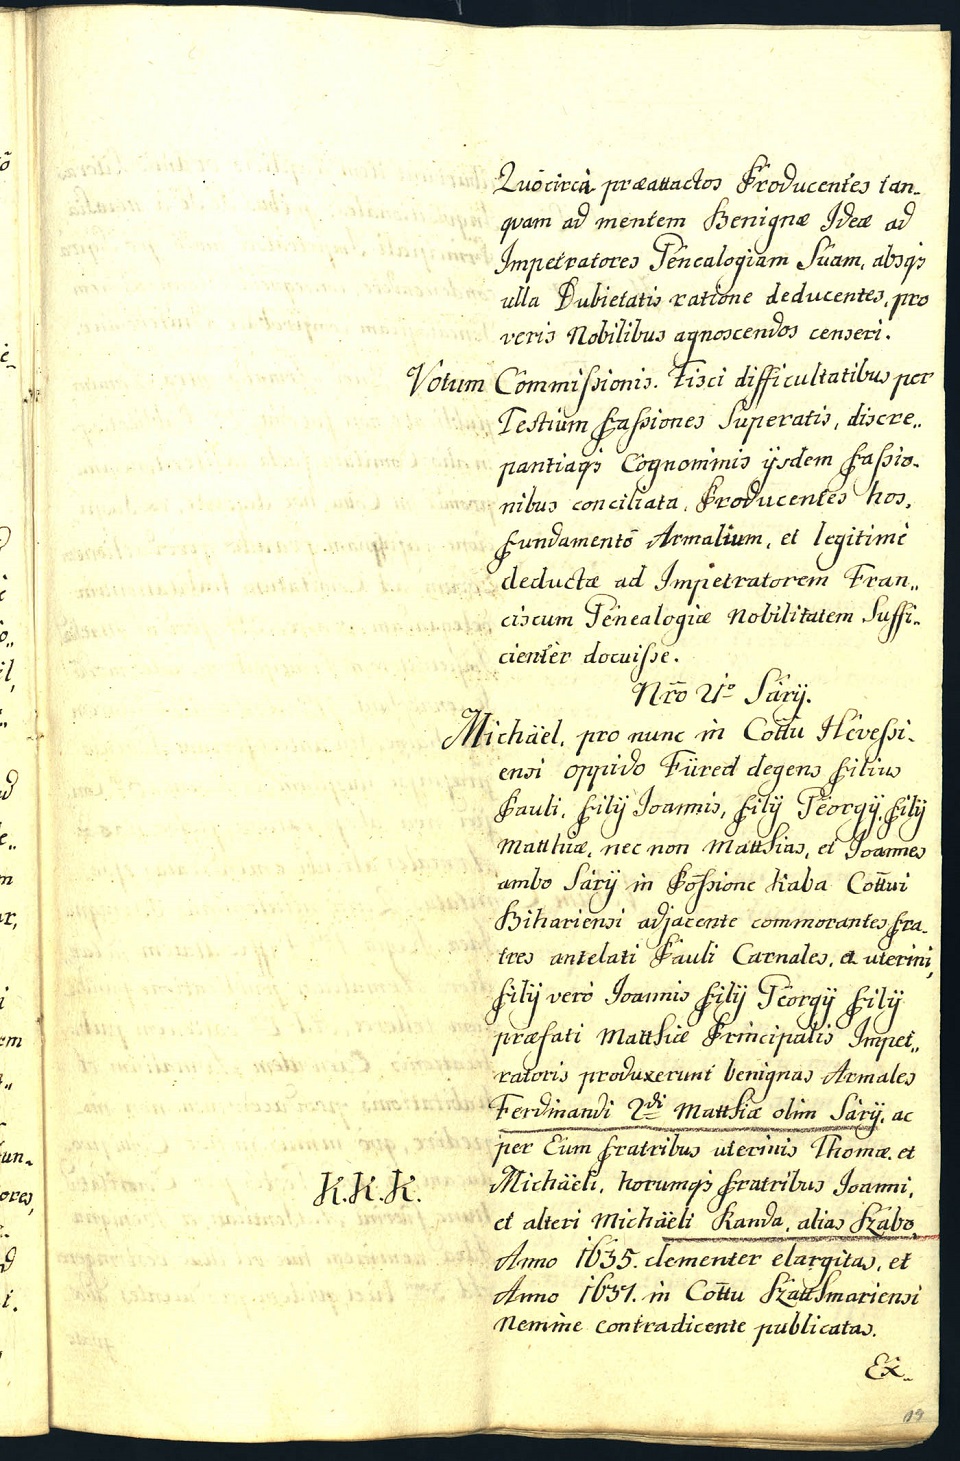 Quócircà præattactos Producentes tan-
quam ad mentem Benignæ Ideæ ad
Impetratores Genealogiam Suam, absqs
ulla Dubietatis ratione deducentes, pro
veris Nobilibus agnoscendos censeri.
Votum Commissionis. Fisci difficultatibus per
Testium Fassiones Superatis, discre„
pantiaqs Cognominis ijsdem Fassio-
nibus conciliata, Producentes hos,
Fundamentō Armalium, et legitimè
deductæ ad Impetratorem Fran„
ciscum Genealogiæ Nobilitatem Suffi„
cientèr docuisse.
Nrō 21o Sáry.
Michäel, pro nunc in Cottu Hevessi-
ensi oppido Füred degens Filius
Pauli, Filij Joannis, Filij Georgij, Filij
Matthiæ, nec non Matthias, et Joannes
ambo Sáry in Possione Kaba Cottui
Bihariensi adjacente commorantes Fra-
tres antelati Pauli Carnales, et uterini,
Filij verò Joannis Filij Georgij Filij
præfati Matthiæ Principalis Impet„
ratoris produxerunt benignas Armales
Ferdinandi 2di Matthiæ olim Sáry, ac
per Eum Fratribus uterinis Thomæ, et
Michäeli, horumqs Fratribus Joanni,
K.K.K.
et alteri Michäeli Kanda, alias Szabo,
Anno 1635. clementer elargitas, et
Anno 1637. in Cottu Szatthmariensi
Nemine contradicente publicatas.
Ex-